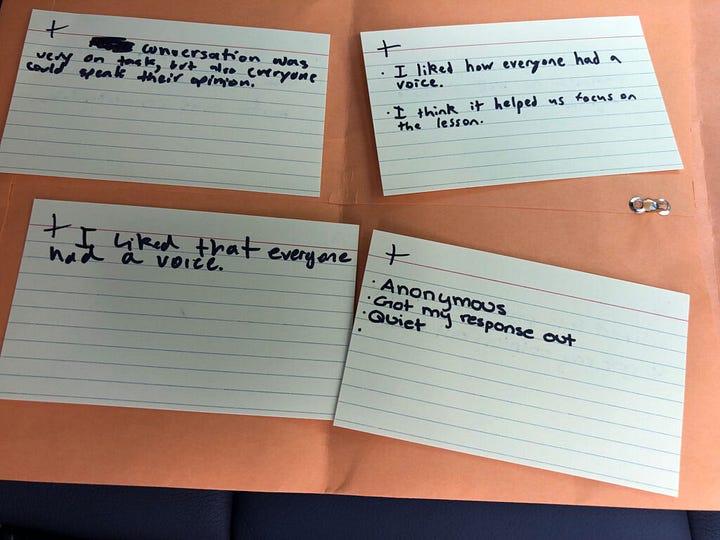 +
conversation was
very on task, but also everyone
could speak their opinion.
+
· I liked how everyone had a
voice.
· I think it helped us focus on
the lesson.
+ I liked that everyone
had a voice.
+
· Anonymous
· Got my response out
· Quiet
·